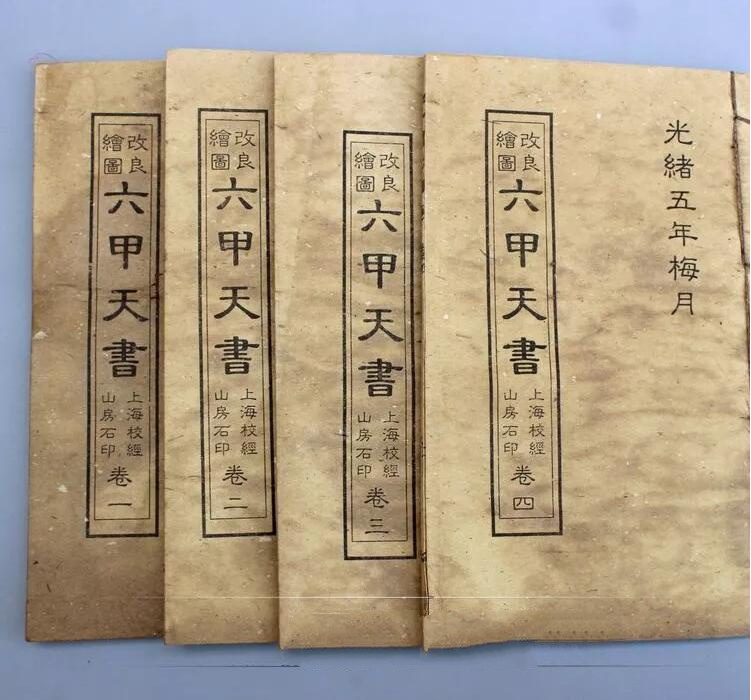 改良
繪圖
六甲天書
上海校經
山房石印
卷一
改良
繪圖
六甲天書
上海校經
山房石印
卷二
改良
繪圖
六甲天書
上海校經
山房石印
卷三
光緒五年梅月
改良
繪圖
六甲天書
上海校經
山房石印
卷四